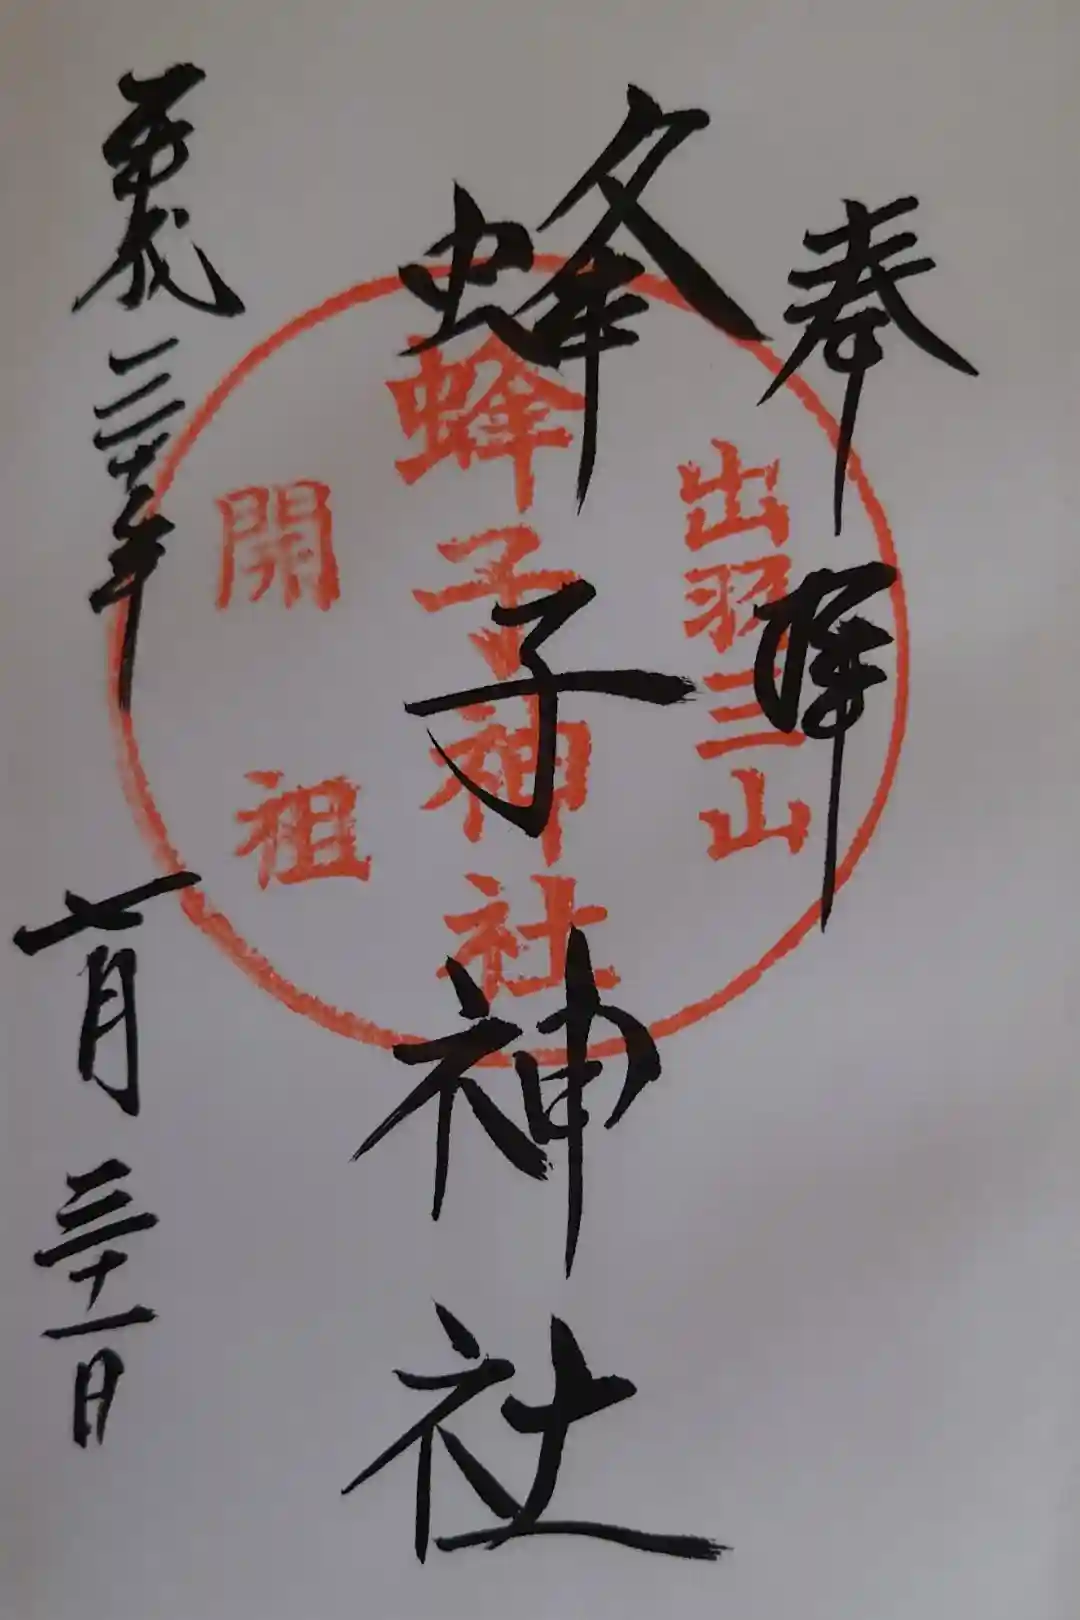 奉拝
出羽三山
蜂子神社
蜂子神社
開祖
平成三十年 七月三十一日